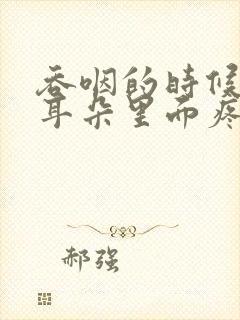 吞咽的时候
耳朵里面疼
郝强